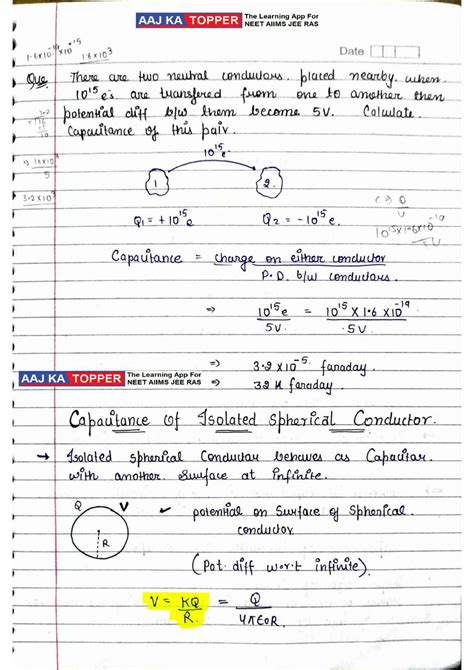 AAJ KA TOPPER The Learning App For
NEET AIIMS JEE RAS
Date
Que There are two neutral conductors. placed nearby. when
10¹⁵ e's are transfered from one to another then
potential diff b/w them become 5V. Calculate
Capacitance of this pair.
10¹⁵e⁻
1 2.
Q₁ = +10¹⁵e Q₂ = -10¹⁵e.
Capacitance = charge on either conductor
P.D. b/w conductors.
⇒ 10¹⁵e = 10¹⁵ X 1.6 X 10⁻¹⁹
5V. 5V.
⇒ 3.2 X 10⁻⁵ faraday.
AAJ KA TOPPER The Learning App For
NEET AIIMS JEE RAS
⇒ 32 μ faraday.
Capacitance Of Isolated Spherical Conductor.
→ Isolated spherical Conductor behaves as Capacitor.
with another. Surface at infinite.
Q V
R
✓ potential on Surface of Spherical.
conductor
(Pot. diff w.r.t infinite).
V = KQ = Q
R. 4π∈0R.